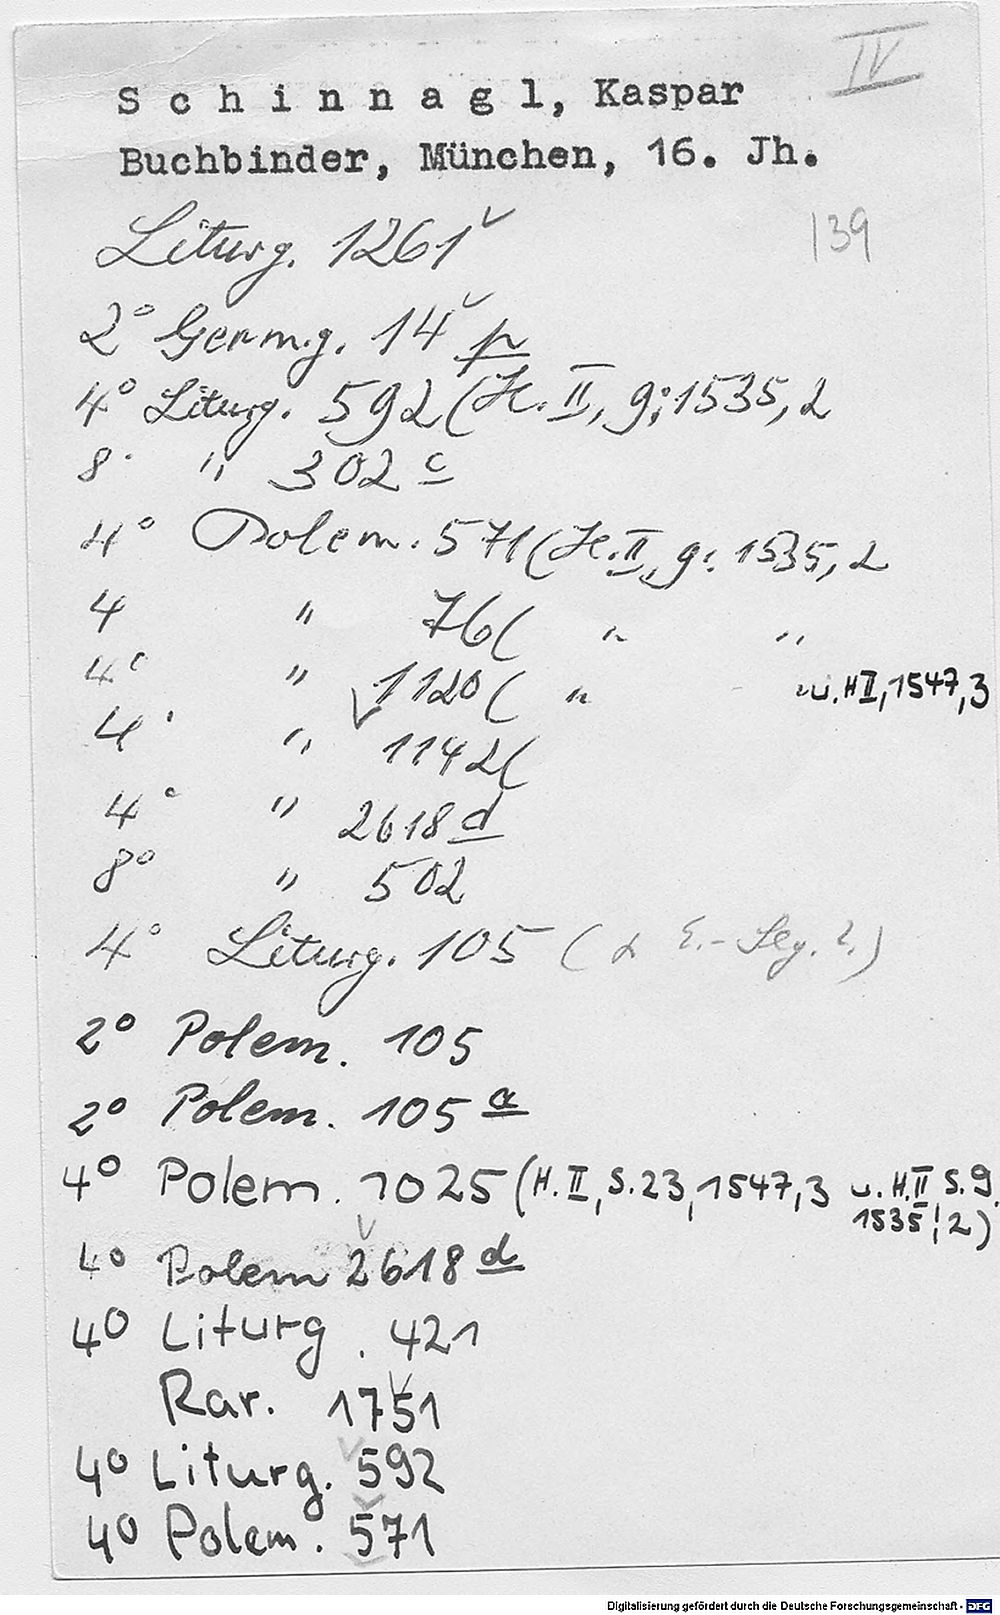 IV
S c h i n n a g l, Kaspar
Buchbinder, München, 16. Jh.
139
Liturg. 1261 ✓
2° Germ.g. 14 ✓ p
4° Liturg. 592 (H. II, 9; 1535, 2
8° " 302 c
4° Polem. 571 (H. II, 9: 1535, 2
4 " 76 ( " "
4° " ✓ 1120 ( " " u. H II, 1547, 3
4° " 1142 (
4° " 2618 d
8° " 502
4° Liturg. 105 (
2° Polem. 105
2° Polem. 105 a
4° Polem. 1025 (H. II, S. 23, 1547, 3 u. H. II S. 9.
1535, 2)
4° Polem 2618 d
4° Liturg. 421
Rar. 1751
4° Liturg. 592
4° Polem. 571
Digitalisierung gefördert durch die Deutsche Forschungsgemeinschaft - DFG